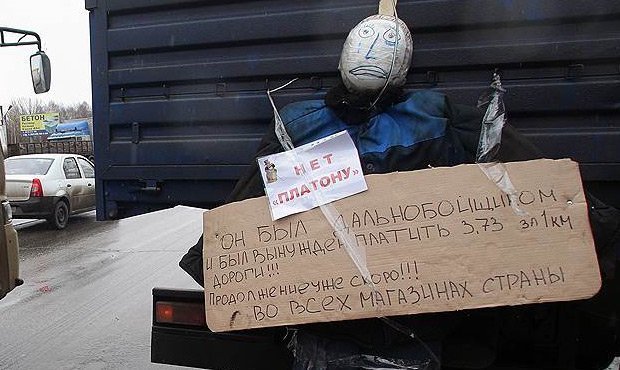 БЕТОН
НЕТ
«ПЛАТОНУ»
ОН БЫЛ ДАЛЬНОБОЙЩИКОМ
И БЫЛ ВЫНУЖДЕН ПЛАТИТЬ 3,73 ЗА 1 КМ
ДОРОГИ!!!
ПРОДОЛЖЕНИЕ УЖЕ СКОРО!!!
ВО ВСЕХ МАГАЗИНАХ СТРАНЫ